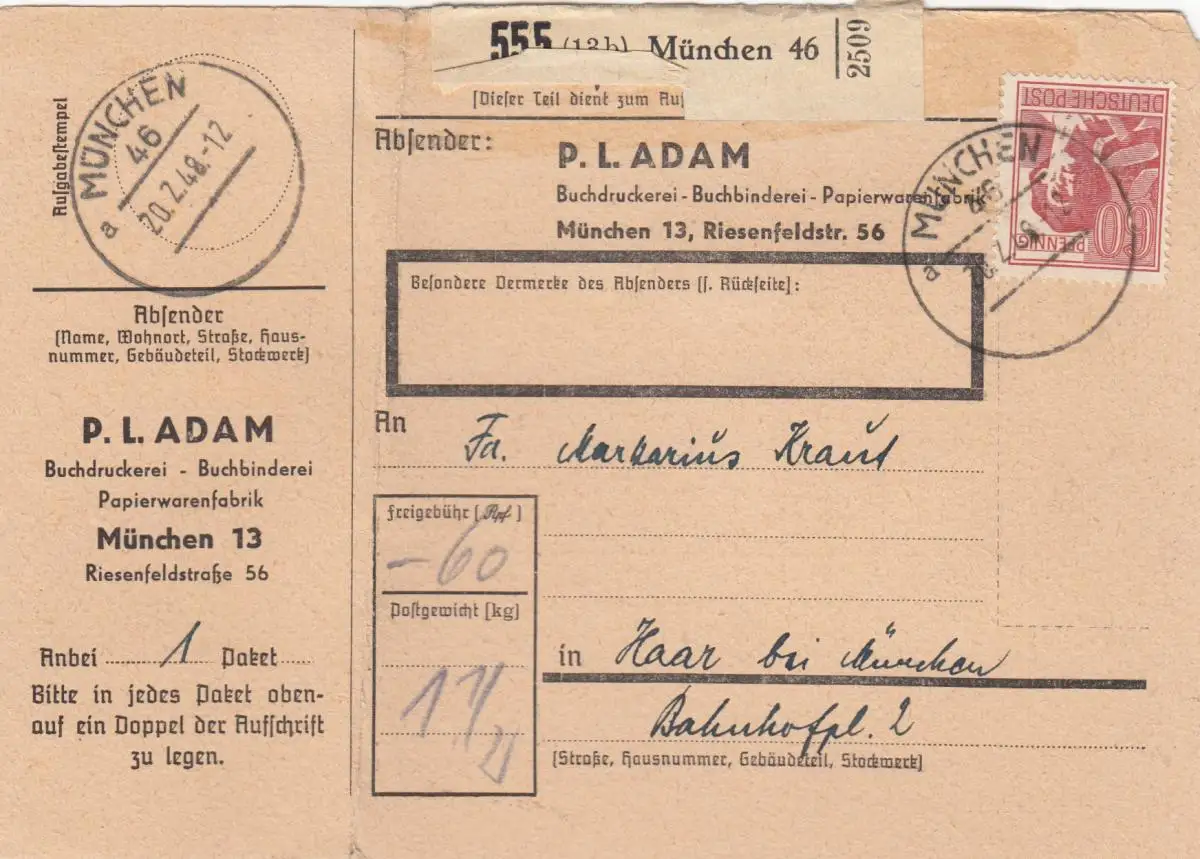 555 (13b) München 46 2509
(Dieser Teil dient zum Auf
Aufgabestempel
MÜNCHEN
46
20.2.48.-12
a
Absender
(Name, Wohnort, Straße, Haus-
nummer, Gebäudeteil, Stockwerk)
P. L. ADAM
Buchdruckerei - Buchbinderei
Papierwarenfabrik
München 13
Riesenfeldstraße 56
Anbei 1 Paket
Bitte in jedes Paket oben-
auf ein Doppel der Aufschrift
zu legen.
Absender:
P. L. ADAM
Buchdruckerei - Buchbinderei - Papierwarenfabrik
München 13, Riesenfeldstr. 56
DEUTSCHE POST
60
PFENNIG
MÜNCHEN
46
a
Besondere Vermerke des Absenders (s. Rückseite):
An Fa. Markarius Kraut
Freigebühr (Rpf.)
-60
Postgewicht (kg)
in Haar bei München
Bahnhofpl. 2
(Straße, Hausnummer, Gebäudeteil, Stockwerk)